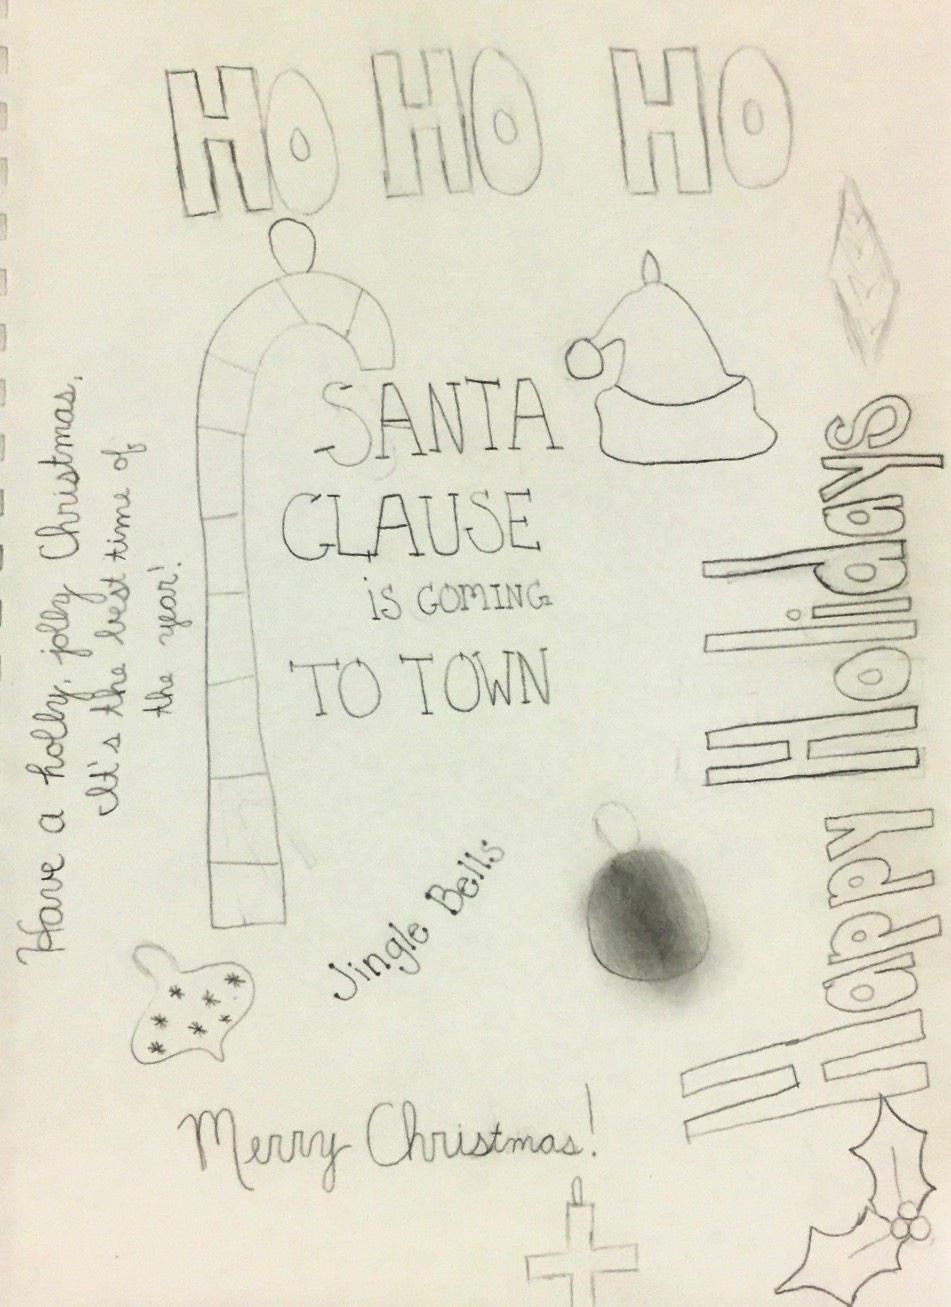 HO HO HO
SANTA
CLAUSE
is COMING
TO TOWN
Have a holly, jolly Christmas,
It's the best time of
the year!
Happy Holidays
Jingle Bells
Merry Christmas!